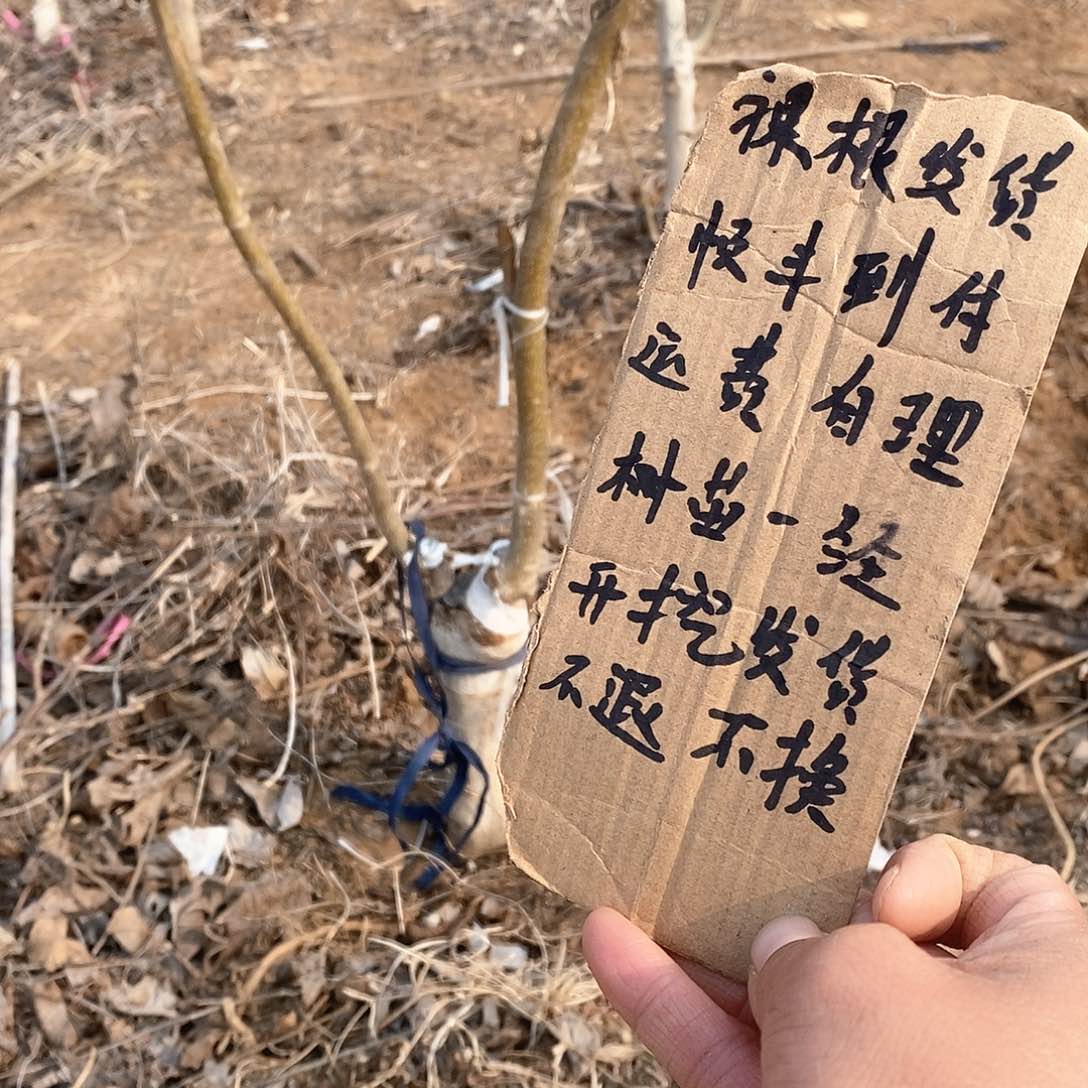 裸根发货
快丰到付
运费有理
树苗一经
开挖发货
不退不换